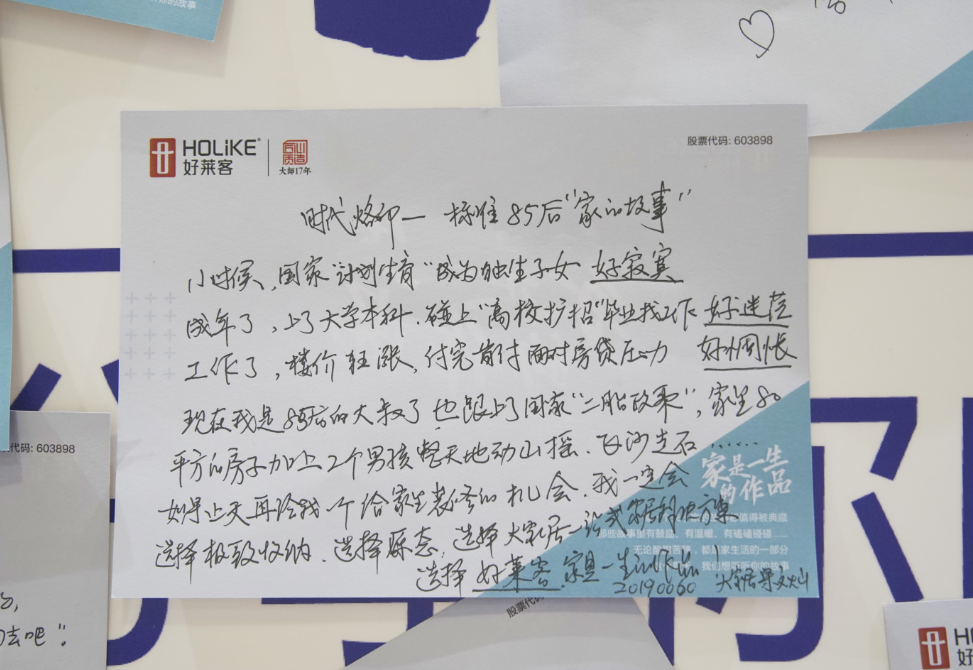 的故事
HOLiKE®
好莱客
大师17年
股票代码: 603898
时代烙印— 标准85后“家的故事”
小时候,国家“计划生育”成为独生子女 好寂寞
成年了,上了大学本科.碰上“高校扩招”毕业找工作 好迷茫
工作了,楼价狂涨,付完首付面对房贷压力 好惆怅
现在我是85后的大叔了也跟上了国家“二胎政策”,家里80
平方的房子加上2个男孩整天地动山摇.飞沙走石......
如果上天再给我一个给家里装修的机会.我一定会
选择极致收纳.选择原态,选择大家居一站式解决方案
选择 好莱客 家是一生的作品!
家是一生
的作品
值得被典藏
有温暖、有磕磕碰碰……
都是家生活的一部分
我们想听听你的故事
代码: 603898
去吧”.
股票代码
HO
好